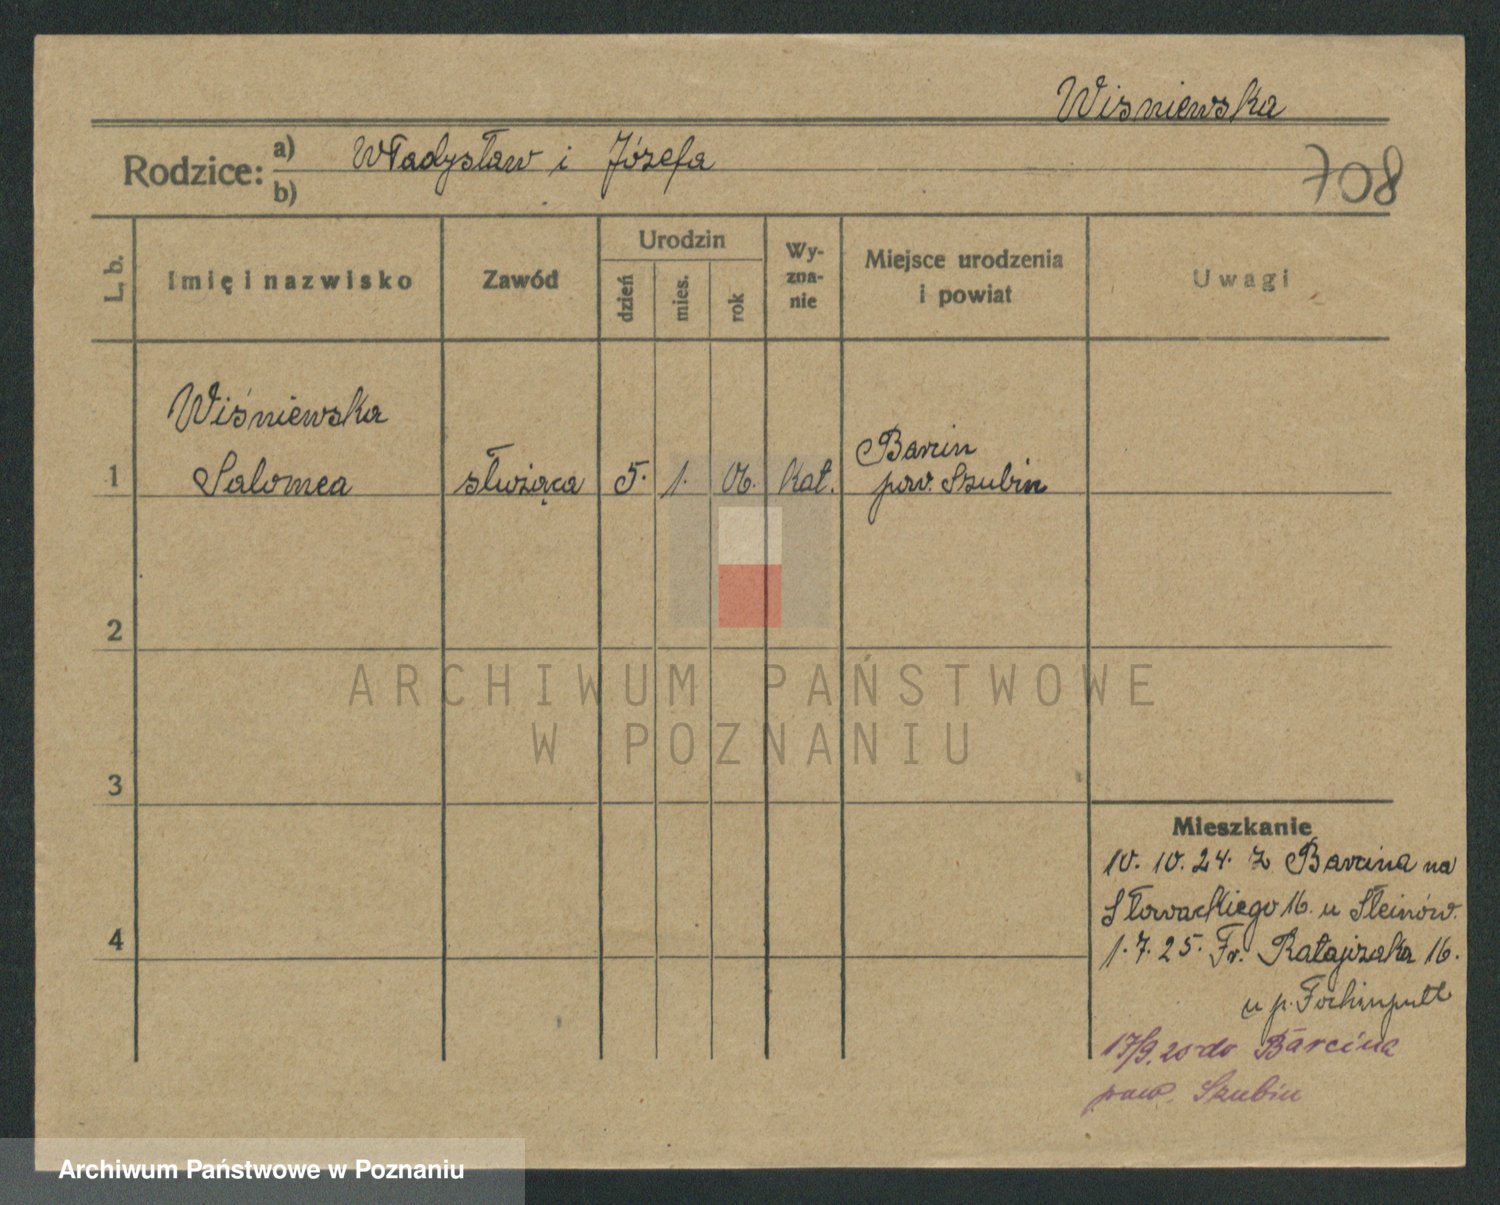 Wiśniewska
Rodzice: a) Władysław i Józefa
b)
708
L. b.
Imię i nazwisko
Zawód
Urodzin
dzień
mies.
rok
Wy-
zna-
nie
Miejsce urodzenia
i powiat
Uwagi
Wiśniewska
1 Salomea służąca 5. 1. 06. kat. Barcin
pow. Szubin
2
3
4
ARCHIWUM PAŃSTWOWE
W POZNANIU
Mieszkanie
10. 10. 24. z Barcina na
Słowackiego 16. u Steinów.
1. 7. 25. Fr. Ratajczaka 16.
u p.
17/9. 25 do Barcina
pow. Szubin
Archiwum Państwowe w Poznaniu